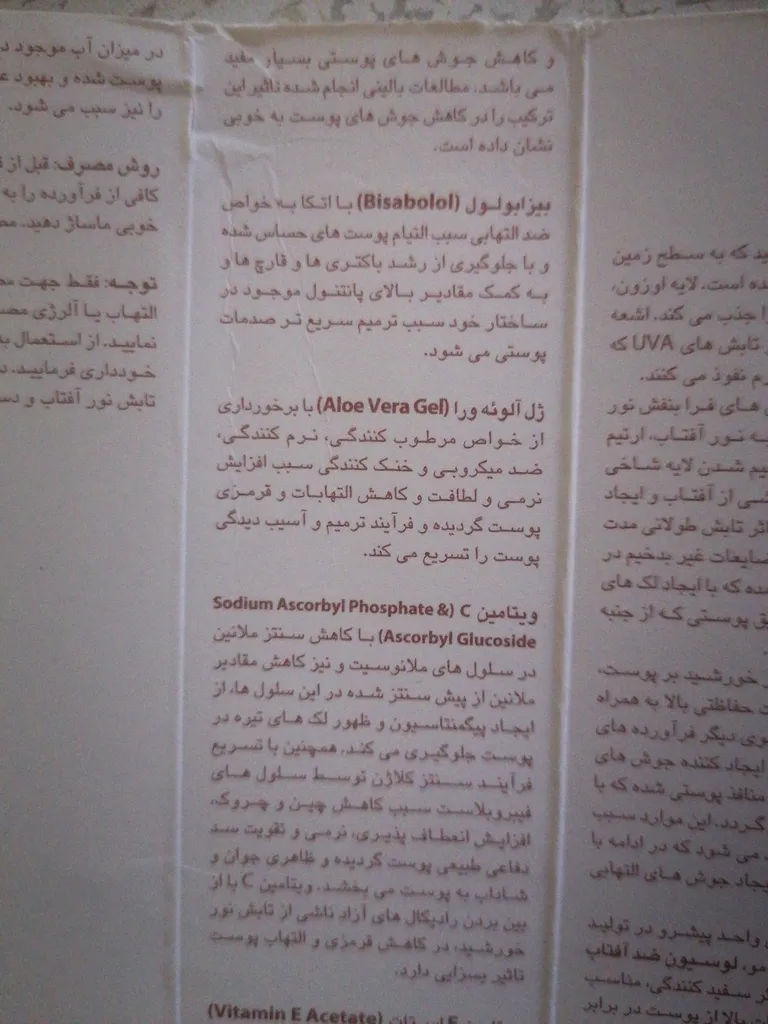 ید که به سطح زمین
ده است. لایه اوزون،
ا جذب می کند. اشعه
تابش های UVA که
رم نفوذ می کنند.
های فرا بنفش نور
به نور آفتاب، اریتم
یم شدن لایه شاخی
شی از آفتاب و ایجاد
اثر تابش طولانی مدت
ضایعات غیر بدخیم در
ده که با ایجاد لک های
ق پوستی که از جنبه
ر خورشید بر پوست،
ت حفاظتی بالا به همراه
وی دیگر فرآورده های
ایجاد کننده جوش های
منافذ پوستی شده که با
گردد. این موارد سبب
د می شود که در ادامه با
یجاد جوش های التهابی
واحد پیشرو در تولید
مو، لوسیون ضد آفتاب
ر سفید کنندگی، مناسب
بالا از پوست در برابر
و کاهش جوش های پوستی بسیار مفید
می باشد. مطالعات بالینی انجام شده تاثیر این
ترکیب را در کاهش جوش های پوست به خوبی
نشان داده است.
بیزابولول (Bisabolol) با اتکا به خواص
ضد التهابی سبب التیام پوست های حساس شده
و با جلوگیری از رشد باکتری ها و قارچ ها و
به کمک مقادیر بالای پانتنول موجود در
ساختار خود سبب ترمیم سریع تر صدمات
پوستی می شود.
ژل آلوئه ورا (Aloe Vera Gel) با برخورداری
از خواص مرطوب کنندگی، نرم کنندگی،
ضد میکروبی و خنک کنندگی سبب افزایش
نرمی و لطافت و کاهش التهابات و قرمزی
پوست گردیده و فرآیند ترمیم و آسیب دیدگی
پوست را تسریع می کند.
ویتامین C (Sodium Ascorbyl Phosphate &
Ascorbyl Glucoside) با کاهش سنتز ملانین
در سلول های ملانوسیت و نیز کاهش مقادیر
ملانین از پیش سنتز شده در این سلول ها، از
ایجاد پیگمنتاسیون و ظهور لک های تیره در
پوست جلوگیری می کند. همچنین با تسریع
فرآیند سنتز کلاژن توسط سلول های
فیبروبلاست سبب کاهش چین و چروک،
افزایش انعطاف پذیری، نرمی و تقویت سد
دفاعی طبیعی پوست گردیده و ظاهری جوان و
شاداب به پوست می بخشد. ویتامین C با از
بین بردن رادیکال های آزاد ناشی از تابش نور
خورشید، در کاهش قرمزی و التهاب پوست
تاثیر بسزایی دارد.
E استات (Vitamin E Acetate)
در میزان آب موجود د
پوست شده و بهبود ع
را نیز سبب می شود.
روش مصرف: قبل از ق
کافی از فرآورده را به
خوبی ماساژ دهید. مص
توجه: فقط جهت مص
التهاب یا آلرژی مصر
نمایید. از استعمال به
خودداری فرمایید. د
تابش نور آفتاب و دس